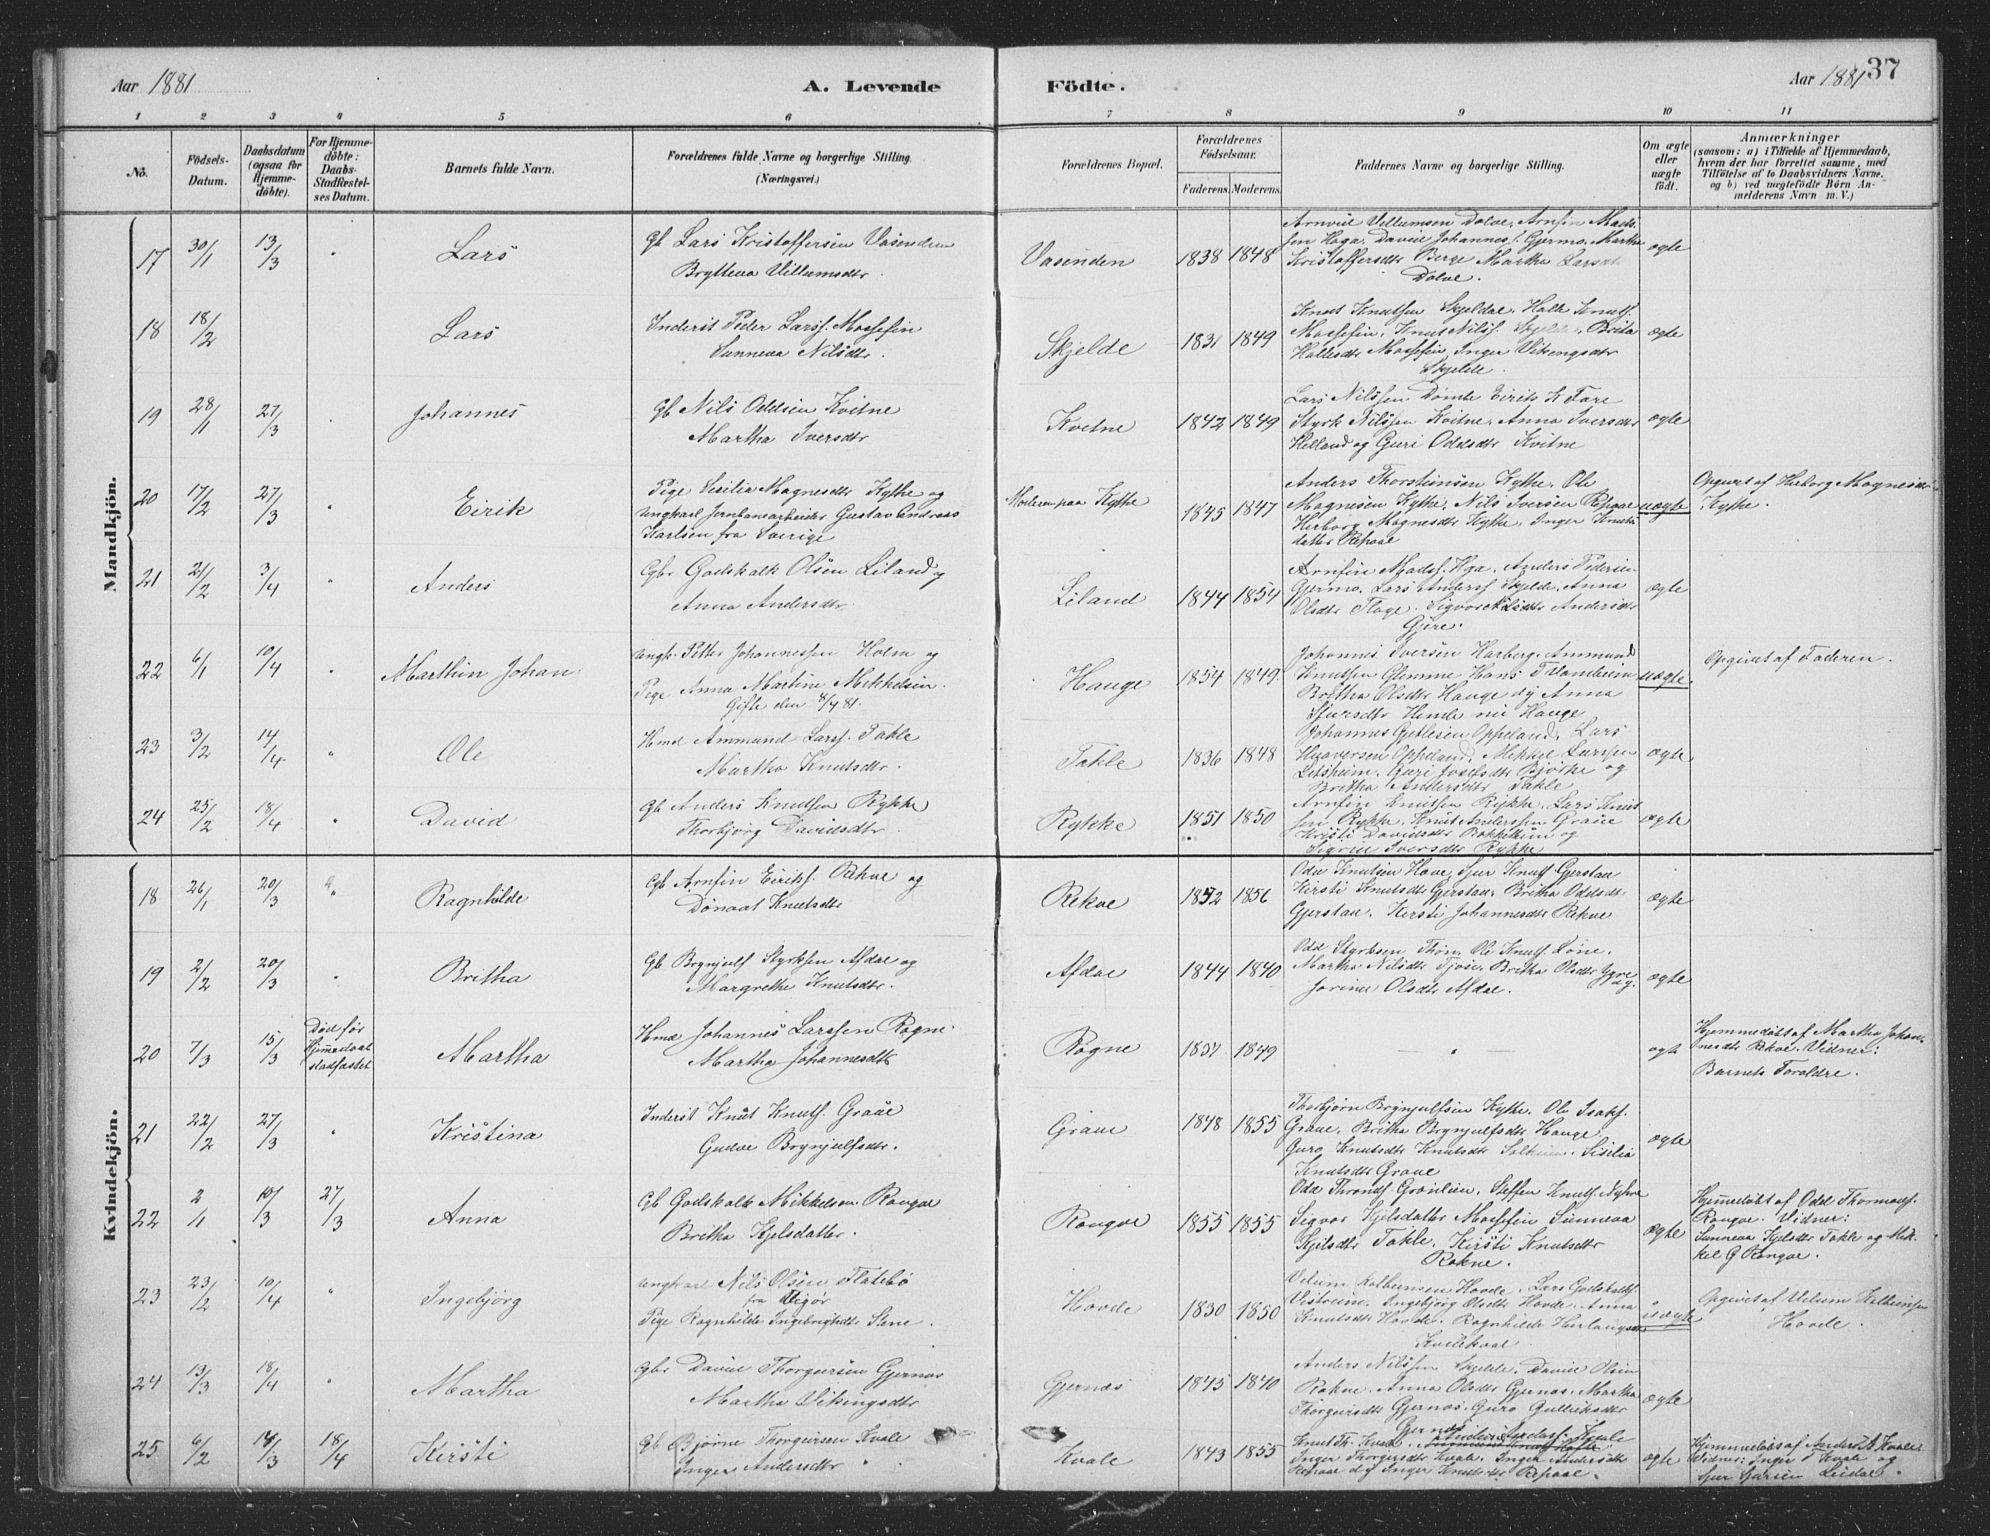 Aar 1881
A. Levende
Födte.
Aar 1881 37
1 2 3 4 5 6 7 8 9 10 11
No.
Födsels-
Datum.
Daabsdatum
(ogsaa for
Hjemme-
döbte).
For Hjemme-
döbte:
Daabs-
Stadfæstel-
ses Datum.
Barnets fulde Navn.
Forældrenes fulde Navne og borgerlige Stilling.
(Næringsvei.)
Forældrenes Bopæl.
Forældrenes
Födselsaar.
Faderens. Moderens.
Faddernes Navne og borgerlige Stilling.
Om ægte
eller
uægte
födt.
Anmærkninger
(saasom: a) i Tilfælde af Hjemmedaab,
hvem der har forrettet samme, med
Tilföielse af to Daabsvidners Navne,
og b) ved uegtefödte Börn An-
melderens Navn m. V.)
Mandkjön.
17 30/1 13/3 " Lars
Gb Lars Kristoffersen Vasenden
Bryteva Villumsdtr.
Vasenden 1838 1848
Arnvid Villumsen Dolve, Arnfin Mads-
sen Haga, David Johannes. Gjermo, Martha
Kristoffersdtr Berge Martha Larsdt
Dolve.
ægte
18 18/2 Lars
Inderst Peder Larss. Mossefin
Sunneva Nilsdtr.
Skjelde 1831 1849
Knut Knutsen Skjeldal, Halle Knuts.
Mossefin, Knut Nilss. Skjelde, Brita
Hallesdtr Mossefin, Inger Vikingsdtr
Skjelde.
ægte
19 28/1 27/3 Johannes
Gb Nils Oddsen Kvitne
Martha Iversdtr
Kvitne 1842 1849
Lars Nilssen Dömbe Eirik K Fare
Styrk Nilssen Kvitne, Anna Iversdtr
Helland og Guri Oddsdtr Kvitne
ægte
20 17/2 27/3 Eirik
Pige Sesilia Magnesdtr Kythe og
ungkarl Jernbanearbeider Gustav Andreas
Karlsen fra Sverige
Moderen paa Kythe 1845 1847
Anders Thorsteinsen Kythe, Ole
Magnesen Kythe, Nils Iversen Repaae
Herborg Magnesdtr Kythe, Inger Knuts
datter Repaae
uægte
Opgivet af Herborg Magnesdtr
Kythe.
21 21/2 3/4 " Anders
Gbr Godskalk Olsen Liland og
Anna Andersdtr.
Liland 1844 1854
Arnfin Madss. Hga, Anders Pedersen
Gjermo, Lars Anderss Skjelde, Anna
Olsdtr Flage, Sigvor Nilsdtr Andersdtr
Gjere.
ægte
22 6/1 10/4 " Marthin Johan
ungk. Petter Johannessen Holm og
Pige Anna Martine Mikkelsen.
Gifte den 4/4 81.
Hauge 1854 1849
Johannes Iversen Harberg, Ammund
Knutsen Glimme Hans T Vanheim
Britha Olsdtr Hauge og Anna
Sjursdtr Hende nu Hauge
uægte
Opgivet af Faderen.
23 3/2 14/4 " Ole
Hmd Ammund Larss. Takle
Martha Knutsdtr.
Takle 1836 1848
Johannes Gjetlesen Oppeland, Lars
Oppeland, Mikkel Larssen
Guri Bjørke og
Britha Andersdtr Takle.
ægte
24 25/2 18/4 " David
Gb Anders Knutsen Rykke
Thorbjörg Davidsdtr.
Rykke 1851 1850
Arnfin Knutsen Rykke, Lars Knut
sen Rykke, Knut Anderssen Graue
Kristi Davidsdtr og
Sigrid Iversdtr Rykke
ægte
Kvindekjön.
18 26/1 20/3 " Ragnhilde
Gb Arnfin Eiriks. Rekve og
Dønaat Knutsdtr
Rekve 1852 1856
Odd Knutsen Hove, Sjur Knuts Gjerstad
Kirsti Knutsdtr Gjerstad, Britha Oddsdt
Gjerstad, Kirsti Johannesdtr Rekve
ægte
19 2/2 20/3 Britha
Gb Brynjulf Styrksen Afdal og
Margrethe Knutsdtr.
Afdal 1844 1840
Odd Styrksen Thøn, Ole Knuts. Lone,
Martha Nilsdtr Tjose, Britha Olsdtr Ygre
og
Jorine Olsdtr Afdal.
ægte
20 7/3 15/3
Død før
Hjemmedaab
stadfæstet
Martha
Hmd Johannes Larssen Rogne
Martha Johannesdtr
Rogne 1851 1849
— " —
ægte
Hjemmedøbt af Martha Johan-
nesdtr Rekve. Vidner:
Barnets Forældre.
21 22/2 27/3 " Kristina
Inderst Knut Knuts. Graue
Gudve Brynjulfsdtr.
Graue 1848 1855
Thorbjørn Brynjulfsen Kythe, Ole Isaks.
Graue, Britha Brynjulfsdtr Hauge,
Guro Knutsdtr Knutsdtr Selheim, Sisilia
Knutsdtr Graue
ægte
22 2/1 10/3 27/3 Anna
Gb Godskalk Mikkelsen Rongve
Britha Kjelsdatter.
Rongve 1855 1855
Odd Thronds Grønlien, Steffen Knuts. Nyhre
Sigvor Kjelsdatter Mossefin Sunneva
Kjelsdtr Takle, Kirsti Knutsdtr
Rokne.
ægte
Hjemmedøbt af Odd Thormods.
Rongve. Vidner:
Sunneva Kjelsdtr Takle og Mik-
kel G Rongve.
23 23/2 10/4 Ingebjørg
ungkar Nils Olsen Flatebø
fra Vigør
Pige Ragnhilde Ingebrigtsdtr Slane.
Hovde 1830 1850
Velum Kolbeinsen Hovde, Lars Godskalks.
Vistreim, Ingebjörg Olsdtr Hovde, Anna
Knutsdtr Hovde, Ragnhilde Herlaugsdtr
Kvilekval
uægte
Opgivet af Velum Kolbeinsen
Hovde.
24 13/3 18/4 " Martha
Gbr David Thorgersen Gjernes
Martha Vikingsdtr
Gjernes 1845 1840
Anders Nilssen Skjelde, David Olsen
Rokne, Anna Olsdtr Gjernes, Martha
Thorgersdtr Gjernes, Guro Gulleiksdtr
Gjernes
ægte
25 6/2 14/3 18/4 Kirsti
Gb Bjørne Thorgersen Kvale
Inger Andersdtr
Kvale 1843 1855
Knut Th. Kvale, Anders Anders. Kvale
Inger Thorgersdtr Kvale, Inger Andersdtr
Repaae og Inger Knutsdtr Repaae.
ægte
Hjemmedøbt af Anders A Kvale.
Vidner: Inger T Kvale og
Sjur Sjursen Leidal.